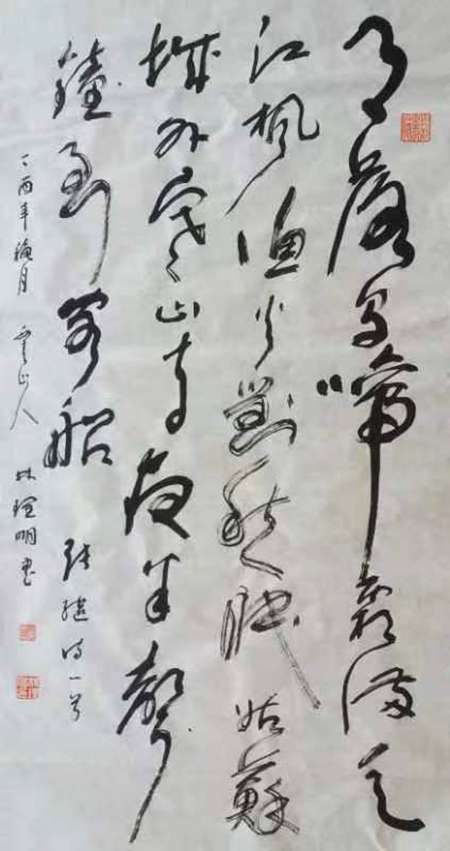 月落烏啼霜滿天
江楓漁火對愁眠姑蘇
城外寒山寺夜半聲
鐘到客船 張繼詩一首
丁酉年月 山人 林明書